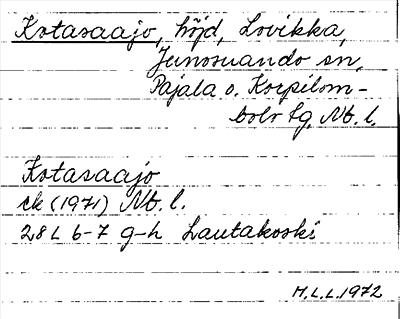 Kotasaajo, höjd, Lovikka,
Junosuando sn,
Pajala o. Korpilom-
bolo tg, Nb. l.
Kotasaajo
ek (1971) Nb. l.
28L 6-7 g-h Lautakoski
M.L.L. 1972